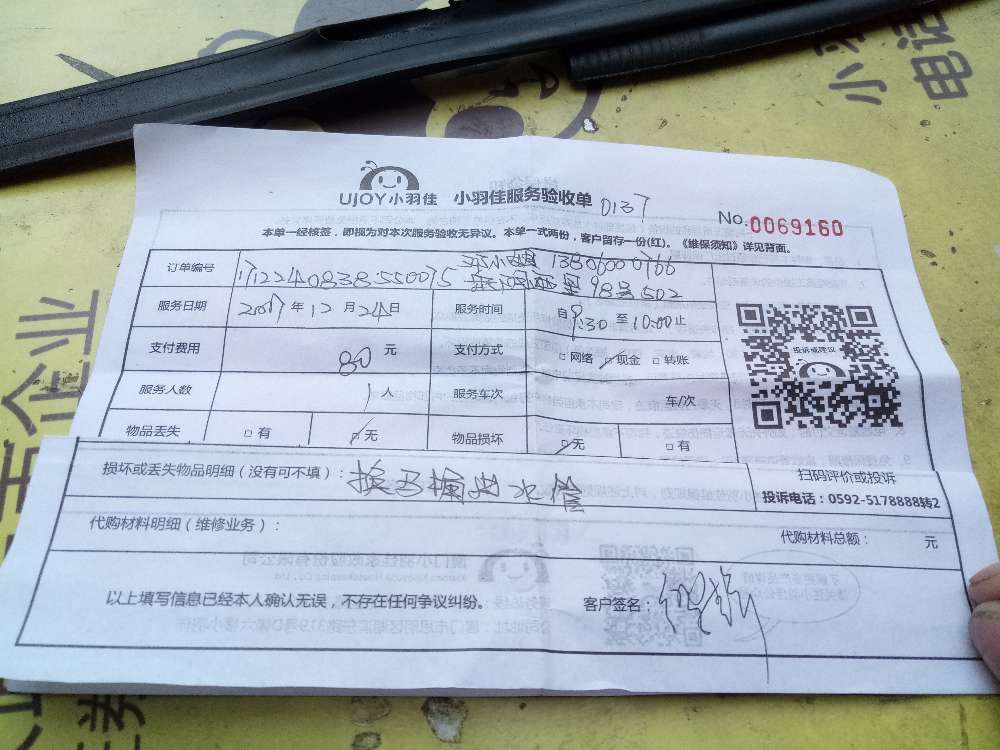 小
电话
UJOY小羽佳 小羽佳服务验收单 0137
No.0069160
本单一经核签，即视为对本次服务验收无异议。本单一式两份，客户留存一份(红)。《维保须知》详见背面。
订单编号 1712240838550075 13806000766
98号502
服务日期 2017年12月24日 服务时间 自9:30至10:00止
支付费用 80元 支付方式 □网络 □现金 □转账
投诉或建议
服务人数 1人 服务车次 车/次
物品丢失 □有 □无 物品损坏 □无 □有
损坏或丢失物品明细（没有可不填）：换了 水管
扫码评价或投诉
投诉电话：0592-5178888转2
代购材料明细（维修业务）： 代购材料总额： 元
以上填写信息已经本人确认无误，不存在任何争议纠纷。 客户签名：
企业